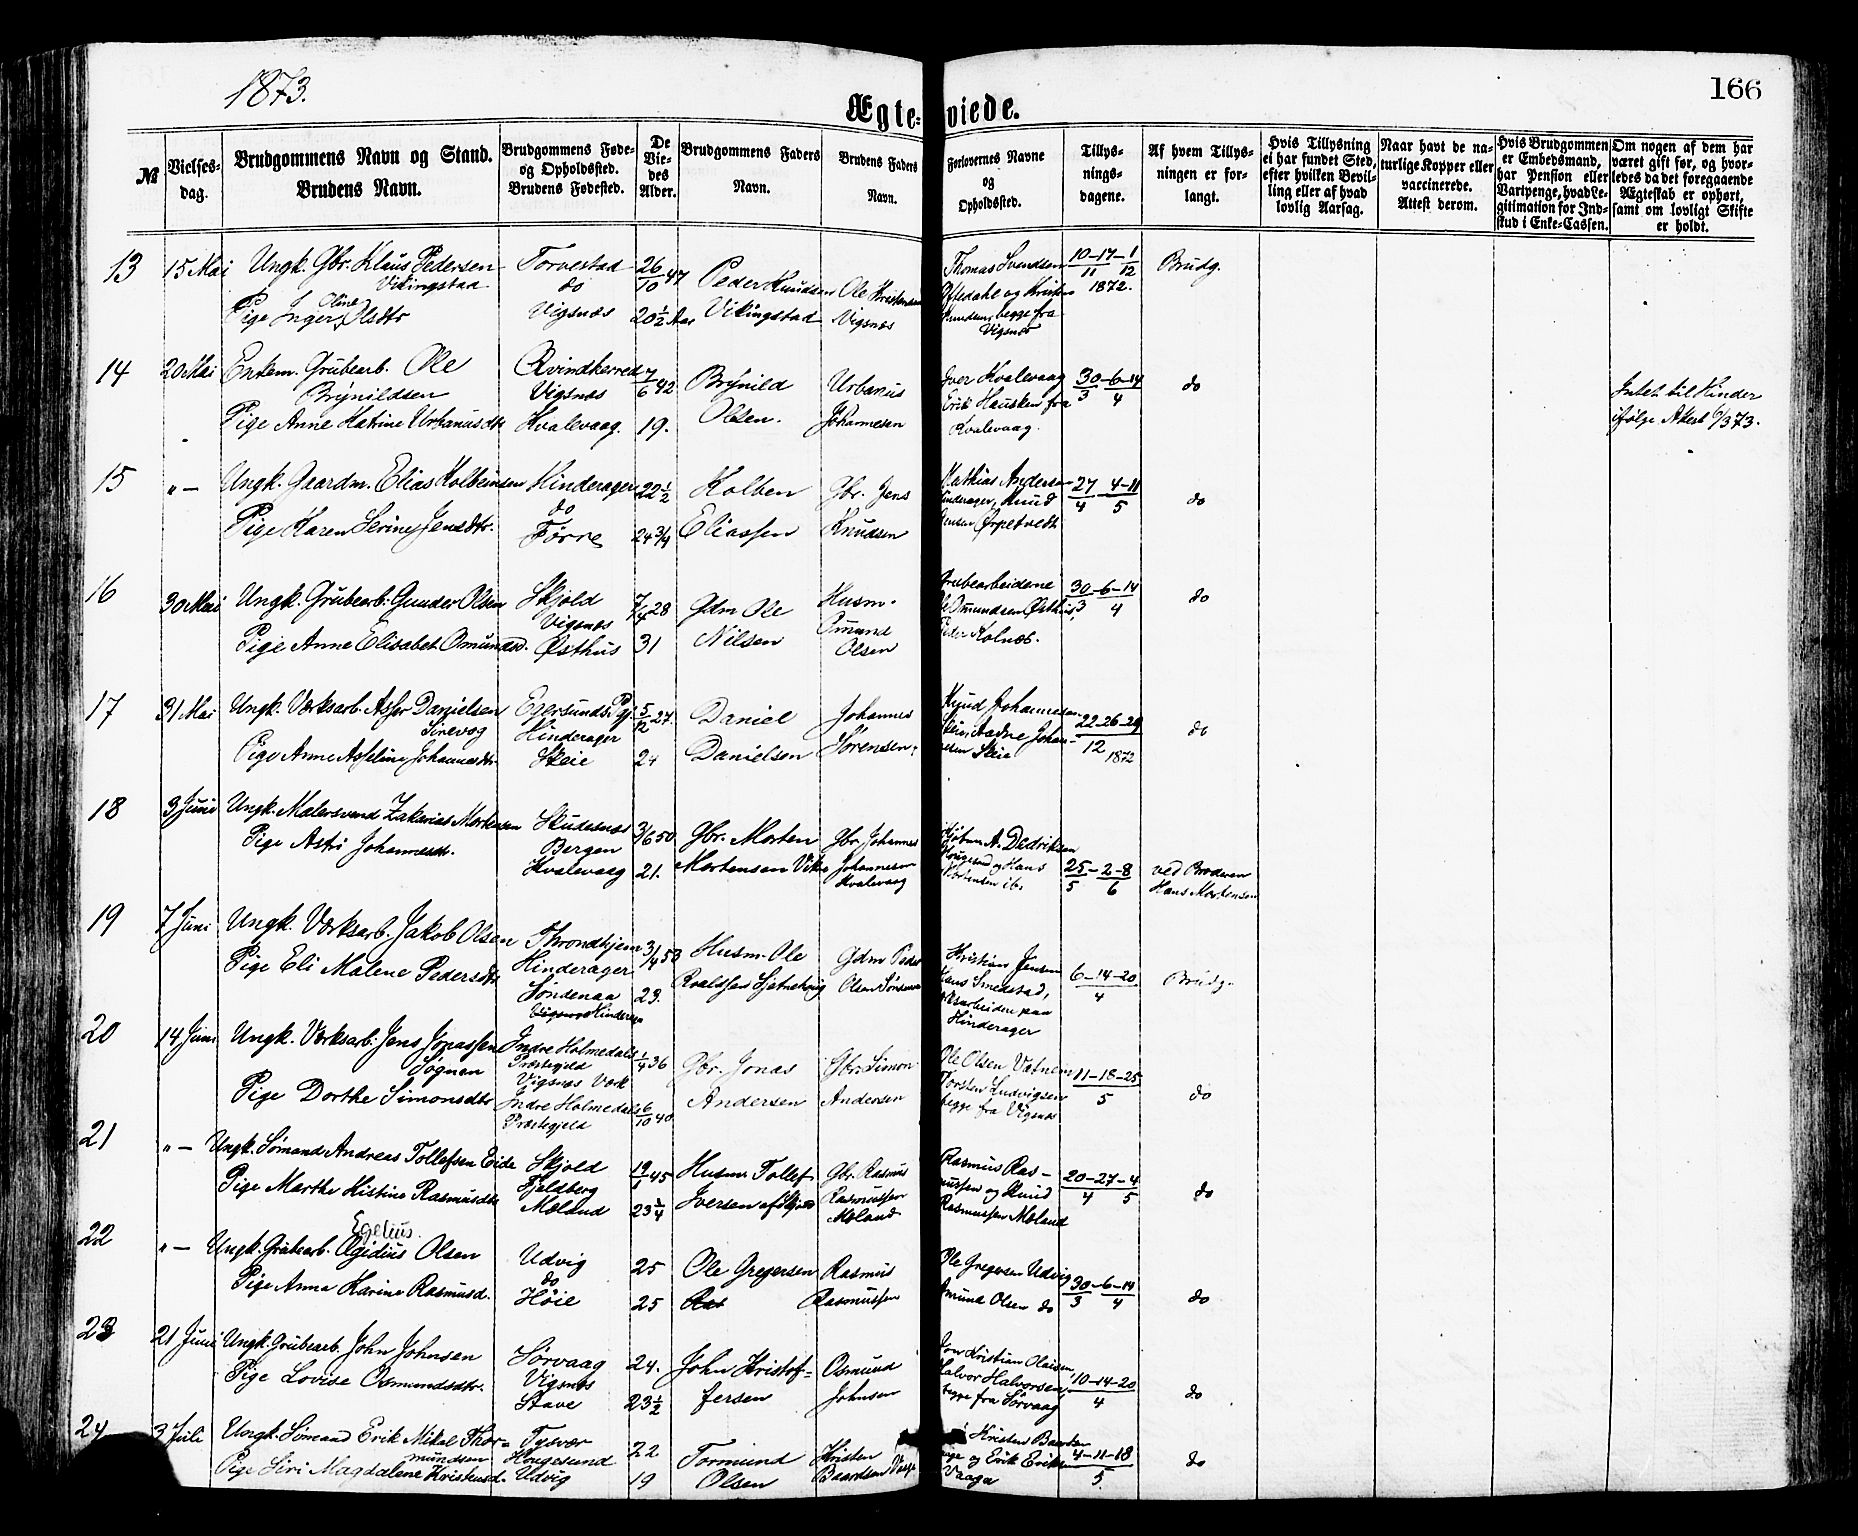 1873.
166
Ægteviede.
№
Vielses-dag.
Brudgommens Navn og Stand. Brudens Navn.
Brudgommens Føde- og Opholdssted. Brudens Fødested.
De Viedes Alder.
Brudgommens Faders Navn.
Brudens Faders Navn.
Forlovernes Navne og Opholdssted.
Tillysningsdagene.
Af hvem Tillysningen er forlangt.
Hvis Tillysning ei har fundet Sted, efter hvilken Bevilling eller af hvad lovlig Aarsag.
Naar havt de naturlige Kopper eller vaccinerede. Attest derom.
Hvis Brudgommen er Embedsmand, har Pension eller Vartpenge, hvad Legitimation for Indskud i Enke-Cassen.
Om nogen af dem har været gift før, og hvorledes da det foregaaende Ægteskab er ophørt, samt om lovligt Skifte er holdt.
13 15 Mai Ungk. Gbr. Klaus Pedersen Torvestad 26/10 47 Peder Knudsen Ole Kristensen Thomas Svendsen 10-17-1 Brudg.
Vikingstad do 11 12
Pige Inger Oline Olsdtr Vigsnæs 20 1/2 Aar Vikingstad Vigsnæs Oftedahl og Kristen 1872.
Knudsen, begge fra
Vigsnæs
14 20 Mai Enkem. Grubearb. Ole Qvindherred 7/6 42 Brynild Urbanus Iver Kvalevaag 30-6-14 do
Brynildsen Vigsnæs Erik Hausken fra 3 4 Intet til Hinder
Pige Anne Katrine Urbanusdtr Kvalevaag. 19. Olsen. Johannesen Kvalevaag. ifølge Attest 6/3 73.
15 "— Ungk. Gaardm. Elias Kolbeinsen Hinderager 22 1/2 Kolben Gbr. Jens Mathias Andersen 27 4-11
do Hinderager, Knud 4 5 do
Pige Karen Serine Jensdtr. Førre 24 3/4 Eliassen Knudsen Jensen Ørpetvedt
16 30 Mai Ungk. Grubearb: Gunder Olsen Skjold 7/4 28 Gdm Ole Husm. Grubearbeiderne 30-6-14 do
Vigsnæs Omund Ole Omundsen Østhus, 3 4
Pige Anne Elisabet Omundsd. Østhus 31 Nilsen Olsen Peder Kolnæs.
17 31 Mai Ungk. Værksarb. Asser Danielsen Egersunds Pgj. 5/12 27. Daniel Johannes Knud Johannesen 22-26-29
Sirevog Hinderager Skeie, Aadne Johan- 12 do
Pige Anne Asseline Johannesdtr. Skeie 24 Danielsen Sørensen. nesen Skeie 1872
18 3 Juni Ungk. Malersvend Zakarias Mortensen Skudesnæs 3/6 50 Gbr. Morten Gbr. Johannes A. Dedriksen
Pige Astri Johannesdtr. Bergen Johannesen Haugesund og Hans 25-2-8 ved Broderen
Kvalevaag 21. Mortensen Vike Kvalevaag Mortensen ib. 5 6 Hans Mortensen
19 7 Juni Ungk. Værksarb. Jakob Olsen Throndhjem 3/4 53 Husm. Ole Gdm Peder Kristian Jensen
Hinderager Hans Smedstad, 6-14-20 Brudg.
Pige Eli Malene Pedersdtr Søndenaa 23. Olsen 4
Hinderager Hinderager
20 14 Juni Ungk. Værksarb: Jens Jonassen Indre Holmedals 1/4 36 Gbr. Jonas Gbr. Simon Ole Olsen Vatnem 11-18-25
Sognan Præstegjeld 5 do
Vigsnæs Værk Torsten Ludvigsen
Pige Dorthe Simonsdtr Indre Holmedals 6/10 40 Andersen Andersen begge fra Vigsnæs
Præstegjeld
21 "— Ungk. Sømand Andreas Tollefsen Eide Skjold 19/1 45 Husm Tollef Gbr. Rasmus Rasmus Ras- 20-27-4
Fjeldberg Rasmussen mussen og Knud 4 5 do
Pige Marthe Kistine Rasmusdtr Mæland 23 1/4 Iversen af Skjold Mæland Rasmussen Mæland
22 "— Ungk. Grubearb. Egidius Olsen Udvig 25 Ole Gregersen Rasmus Ole Gregersen Udvig 30-6-14
Egelius. do 3 4 do
Pige Anna Karine Rasmusd. Høie 25 Rasmussen Amund Olsen do
23 21 Juni Ungk. Grubearb. John Johnsen Sørvaag 24. John Kristof- Osmund Kristian Olaisen, 10-14-20
Vigsnæs Halvor Halvorsen, 4 do
Pige Lovise Osmundsdtr. Stave 23 1/2 fersen Johnsen begge fra Sørvaag
24 3 Juli Ungk. Sømand Erik Mikal Thor- Tysvær 22 Tormund Kristen Kristen Baardsen
mundsen Haugesund og Erik Eriksen 4-11-18 do
Pige Siri Magdalene Kristensd. Udvig 19 Olsen Baardsen Vaage Vaaga 5.